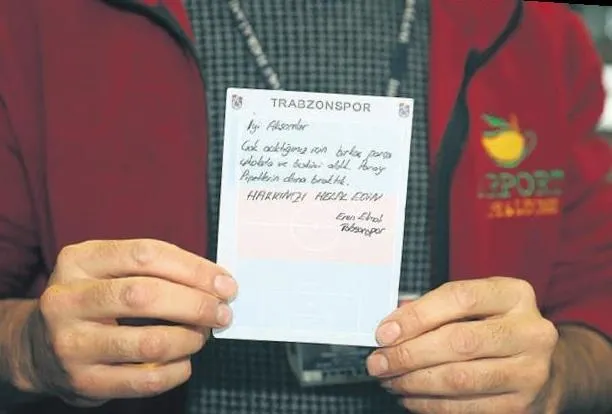 TRABZONSPOR
İyi Akşamlar
Çok acıktığımız için birkaç parça
çikolata ve bisküvi aldık. Parayı
Pipetlerin altına bıraktık.
HAKKINIZI HELAL EDİN
Eren Elmalı
Trabzonspor
PORT